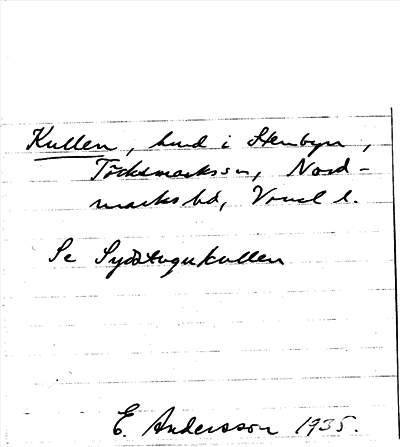 Kullen, hmd i Stenbyn,
Töcksmarks sn, Nord-
marks hd, Vrml l.
Se Sydstugukullen
E. Andersson 1935.